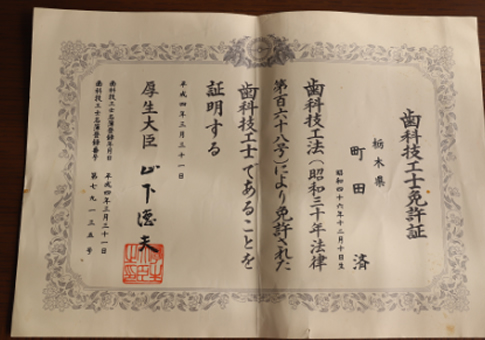 歯科技工士免許証
栃木県
町田済
昭和四十六年十二月十日生
歯科技工法(昭和三十年法律
第百六十八号)により免許された
歯科技工士であることを
証明する
平成四年三月三十一日
厚生大臣 山下徳夫
歯科技工士名簿登録年月日 平成四年三月三十一日
歯科技工士名簿登録番号 第七九一三五号